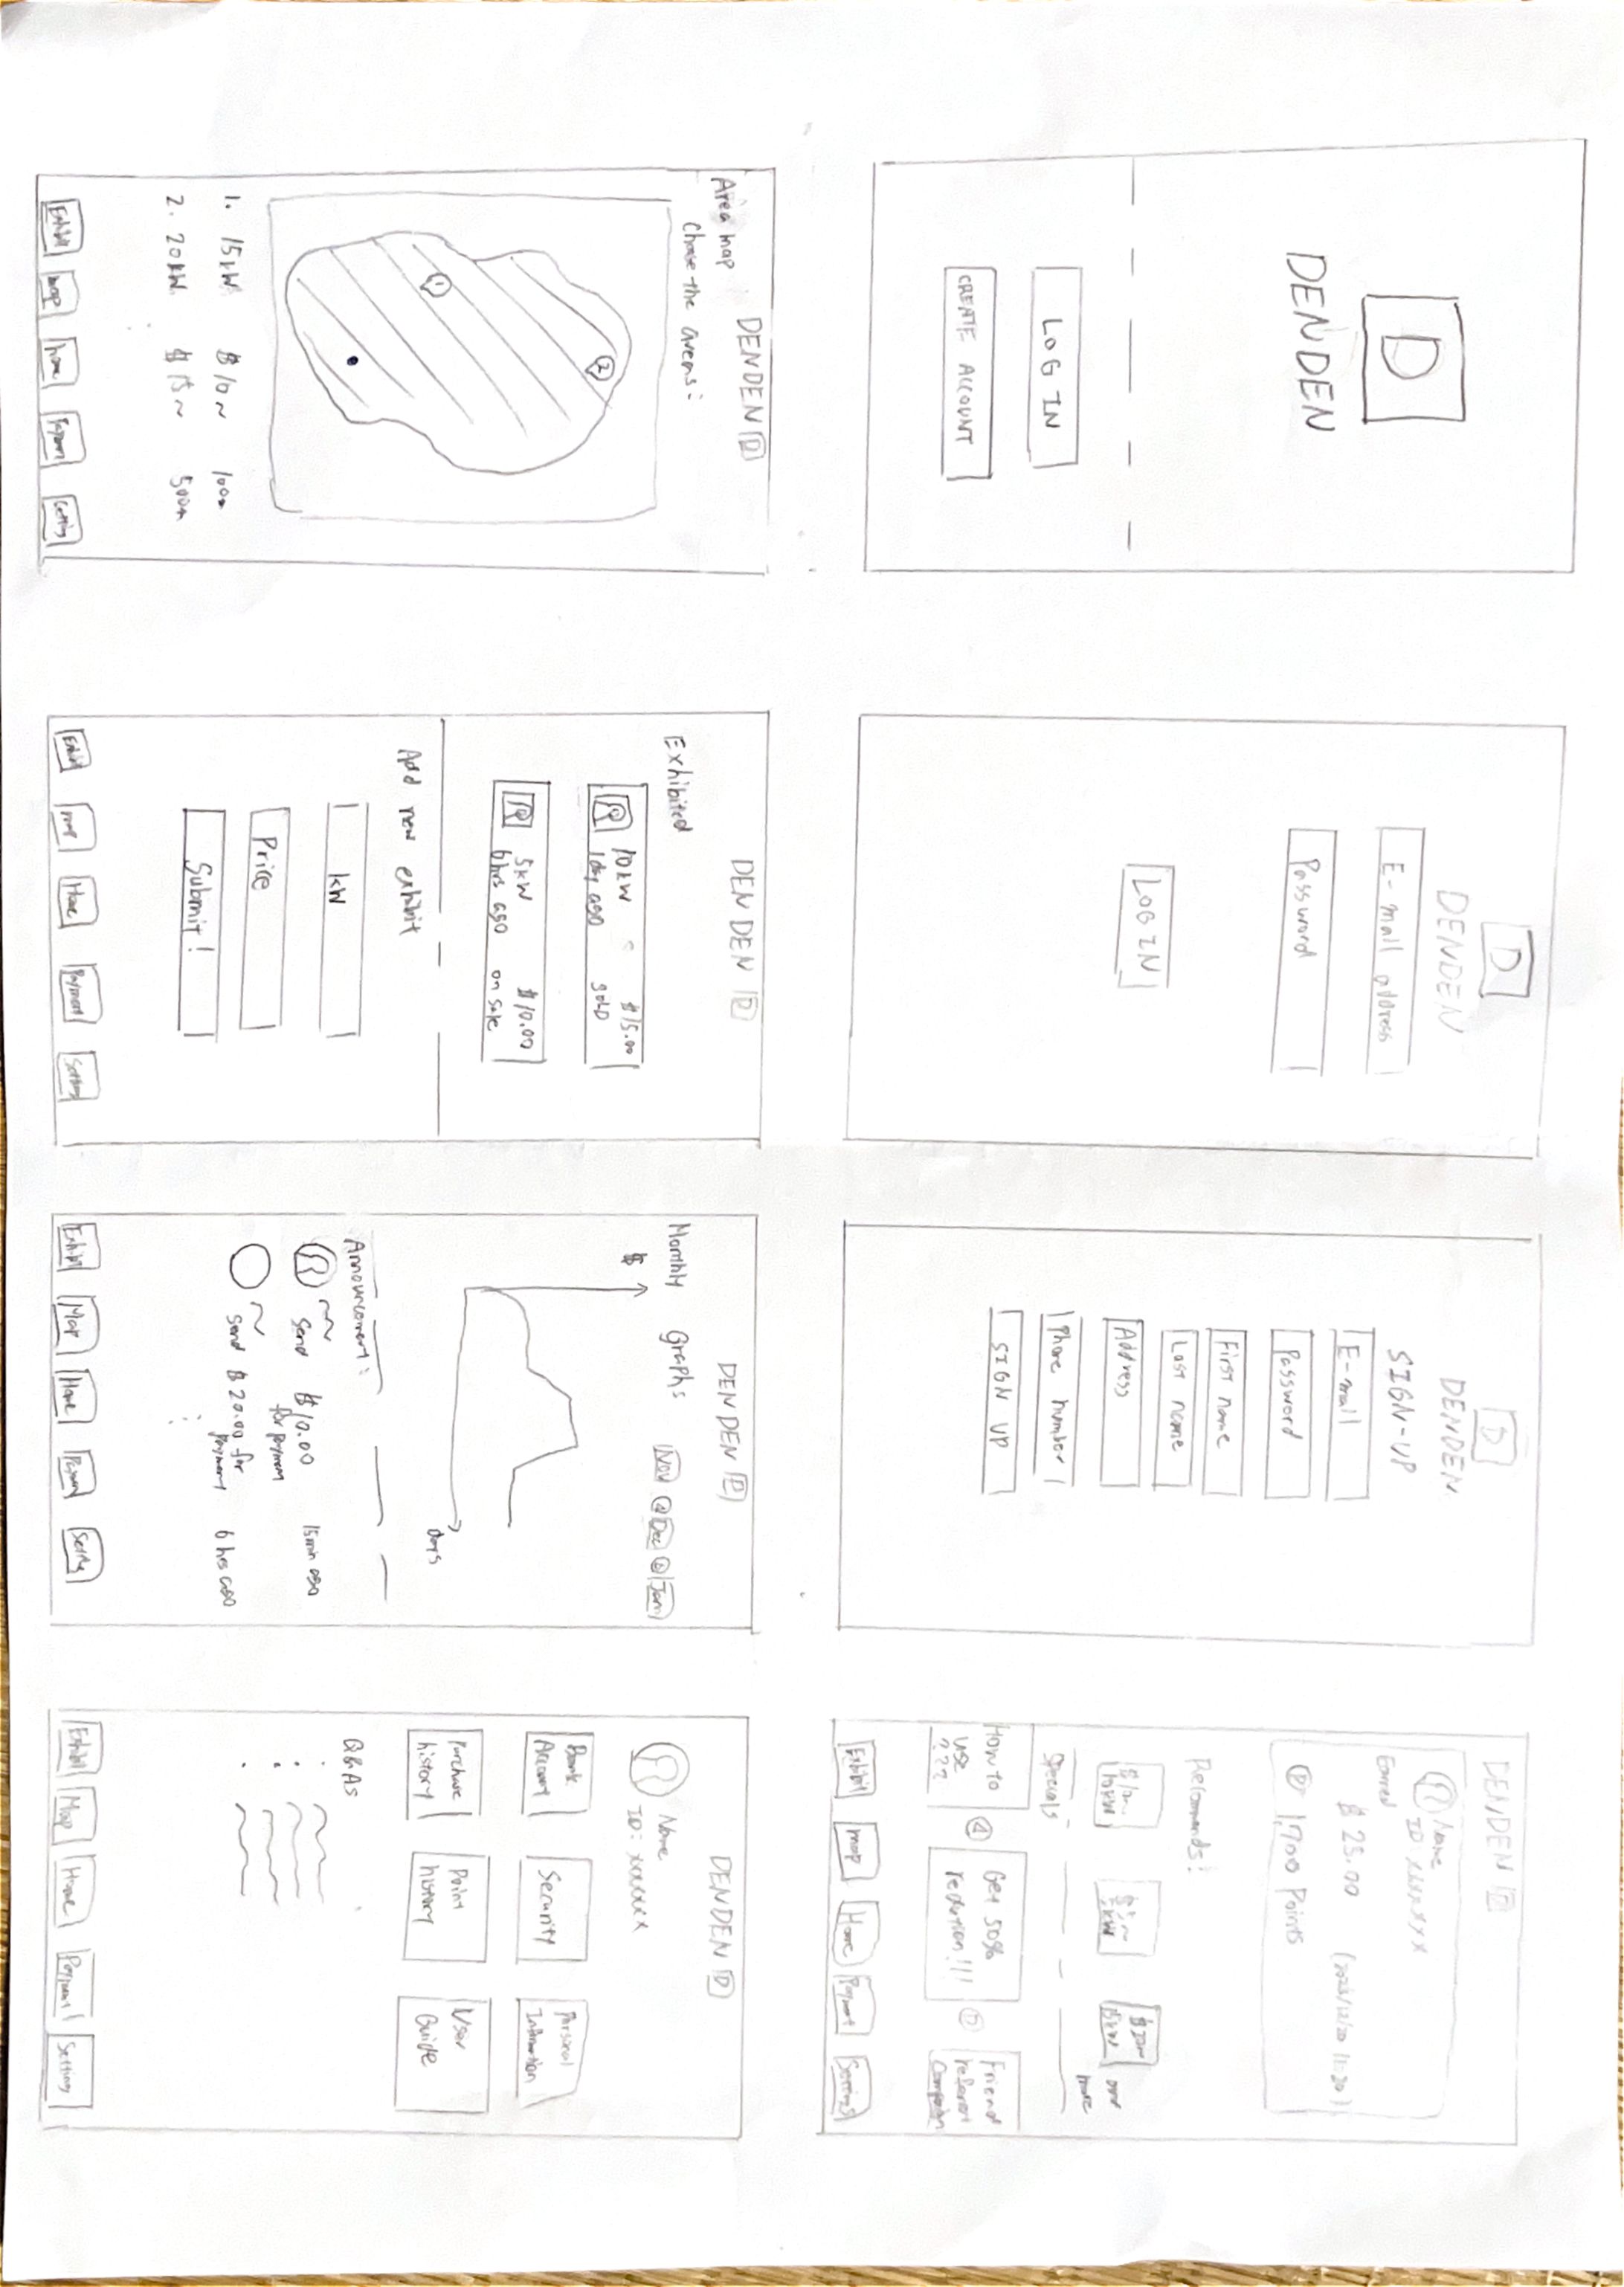 D
DENDEN
LOG IN
CREATE ACCOUNT
D
DENDEN
E-mail address
Password
LOG IN
D
DENDEN
SIGN-UP
E-mail
Password
First name
Last name
Address
Phone number
SIGN UP
DENDEN D
Name
ID xxxxxxx
Earned
$ 25.00
P 1,700 Points
Recommends!
10kW
and more
Specials
How to use ???
Get 50% reduction!!!
Friend referent campaign
Exhibit map Home Payment Settings
DENDEN D
Area map
Choose the areas:
1
2
1. 15kW $10~ 100m
2. 20kW $15~ 500m
Exhibit map home Payment Setting
DENDEN D
Exhibited
10kW $15.00
1day ago SOLD
5kW $10.00
6hrs ago on sale
Add new exhibit
kW
Price
Submit!
Exhibit map Home Payment Setting
DENDEN D
Monthly Graphs Nov Dec Jan
$
days
Announcement:
~ Send $10.00 for payment 15min ago
~ Send $20.00 for payment 6 hrs ago
Exhibit Map Home Payment Setting
DENDEN D
Name
ID: xxxxxx
Bank Account
Security
Personal Information
Purchase history
Point history
User Guide
Q&As
Exhibit Map Home Payment Setting